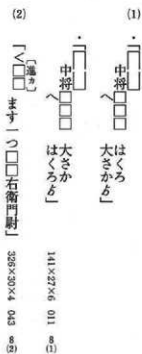 (1)
・「□□□
中将へ□□□
はくろ
大さかゟ」
・「□□□
中将へ□□□
大さか
はくろゟ」 141×27×6 011 8(1)
(2)
〔進ヵ〕
「く□□ます一つ□□右衛門尉」 326×30×4 043 8(2)